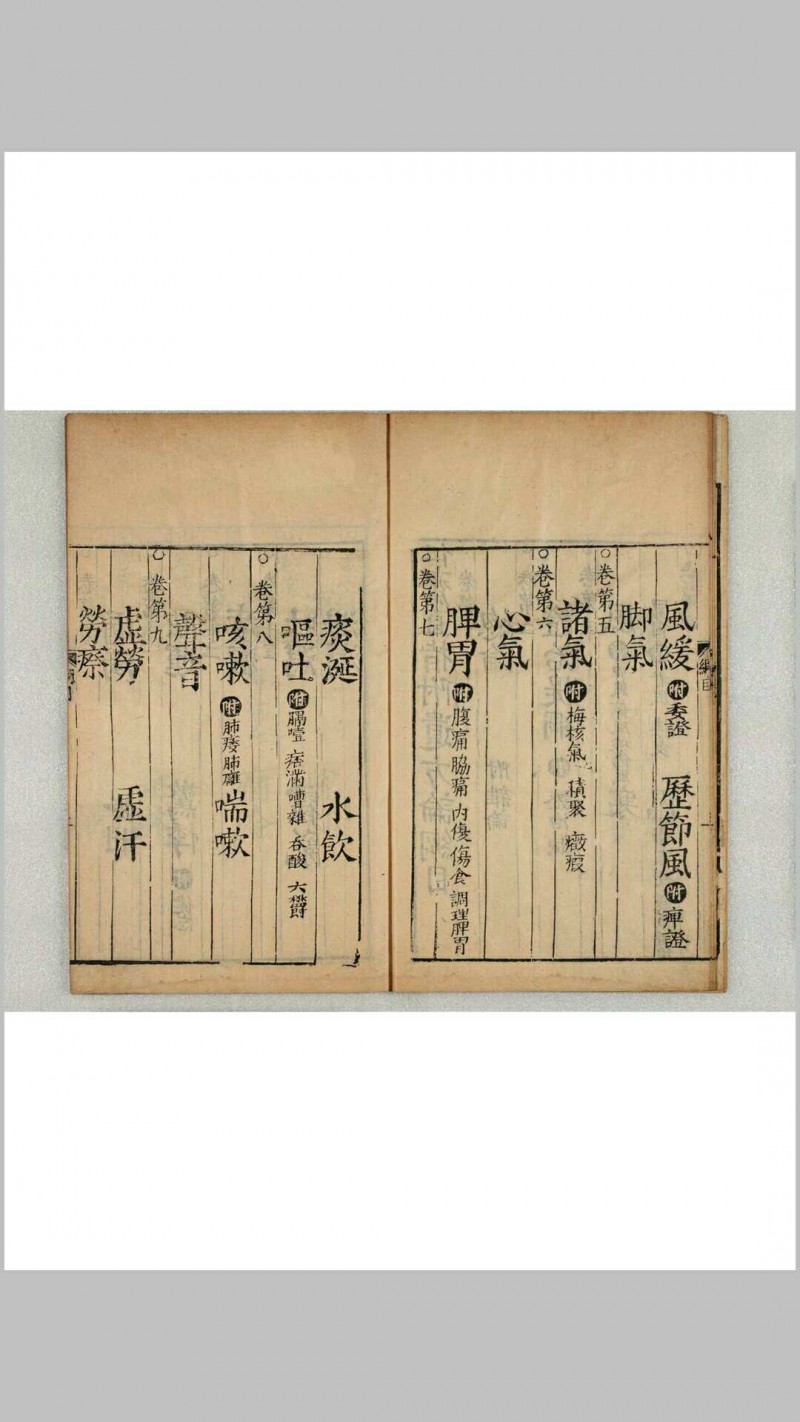 綱目
風緩 附 痿證 歷節風 附 痺證
脚氣
○卷第五
諸氣 附 梅核氣 積聚 癥瘕
○卷第六
心氣
脾胃 附 腹痛 脇痛 內傷 傷食 調理脾胃
○卷第七
痰涎 水飲
嘔吐 附 膈噎 痞滿 嘈雜 吞酸 六鬱
○卷第八
咳嗽 附 肺痿 肺癰 喘嗽
聲音
○卷第九
虛勞 虛汗
勞瘵